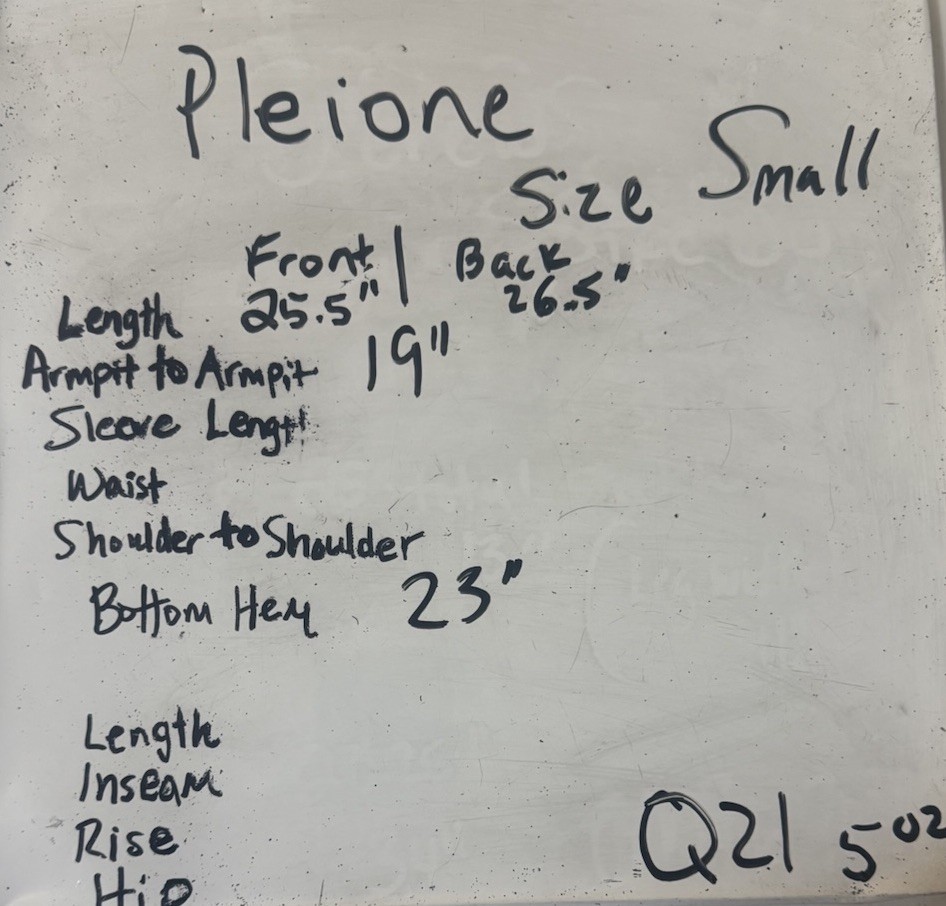 Pleione
Size Small
Front | Back
Length 25.5" 26.5"
Armpit to Armpit 19"
Sleeve Length
Waist
Shoulder to Shoulder
Bottom Hem 23"
Length
Inseam
Rise
Hip
Q21 5oz